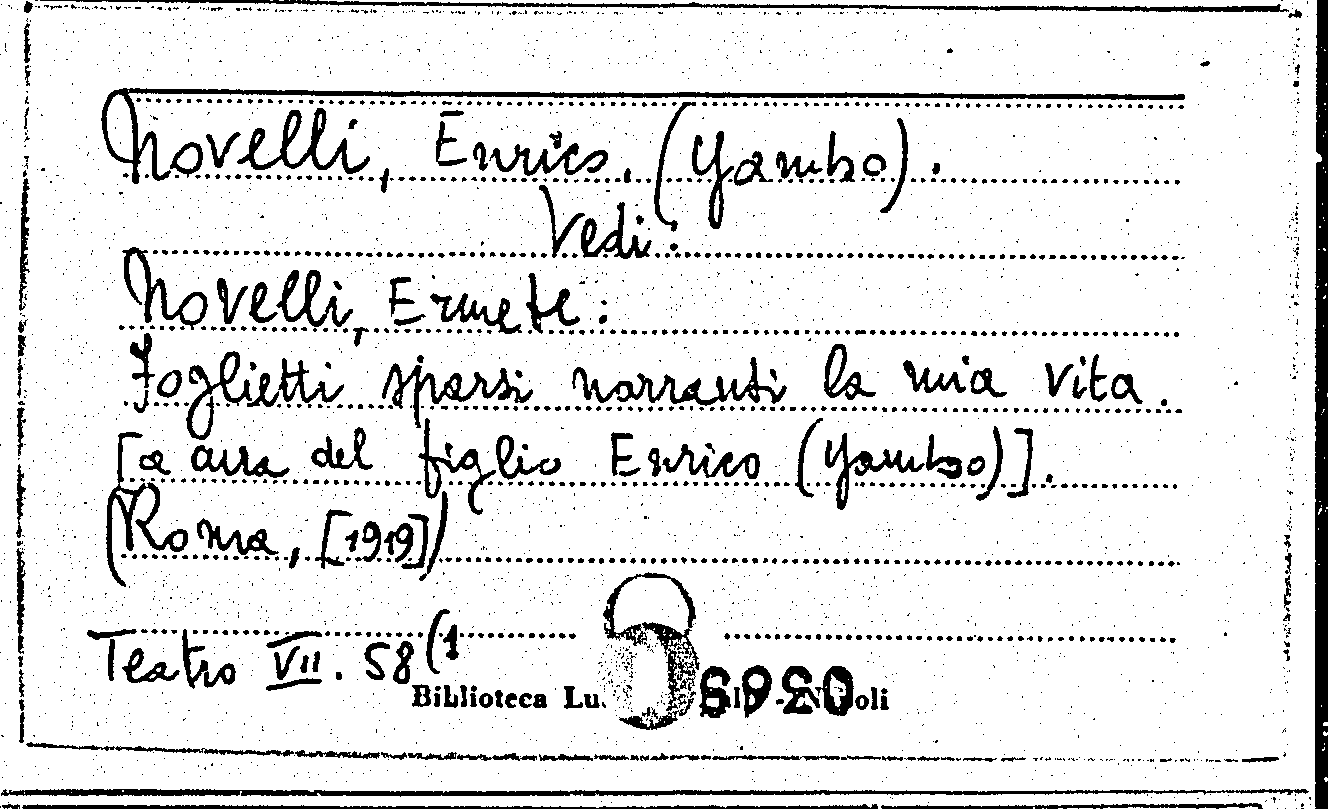 Novelli, Enrico. (Yambo).
Vedi:
Novelli, Ermete:
Foglietti sparsi narranti la mia vita.
[a cura del figlio Enrico (Yambo)].
(Roma, [1919])
Teatro VII. 58(1
Biblioteca Lu.